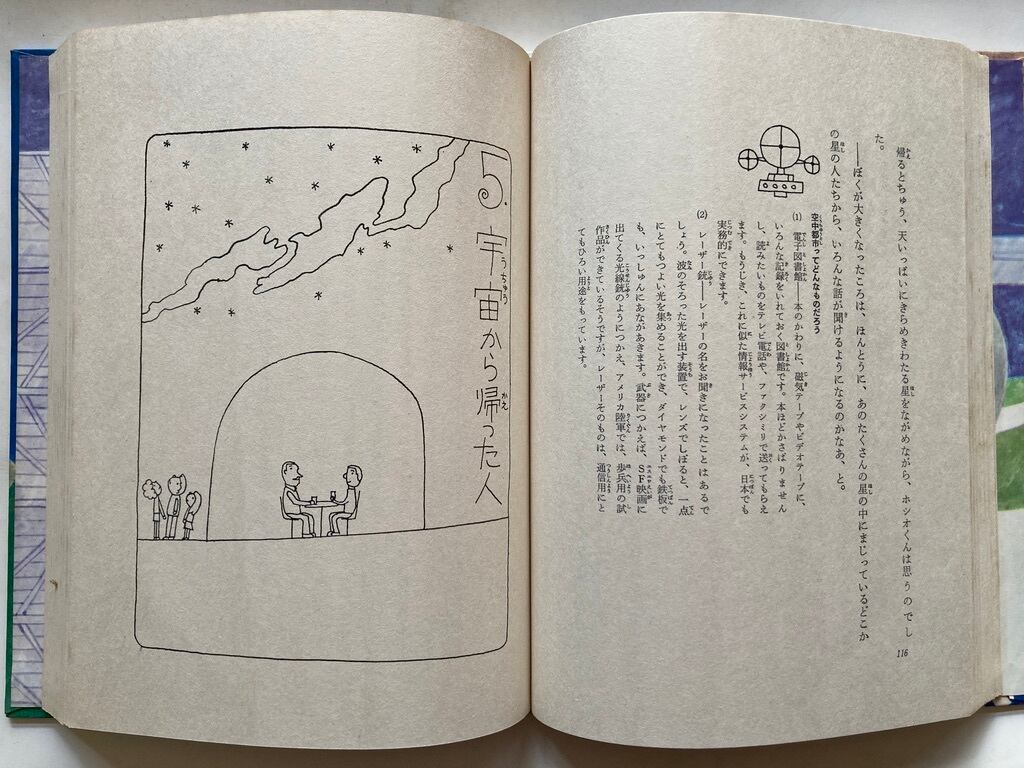 帰るとちゅう、天いっぱいにきらめきわたる星をながめながら、ホシオくんは思うのでし
た。
――ぼくが大きくなったころは、ほんとうに、あのたくさんの星の中にまじっているどこか
の星の人たちから、いろんな話が聞けるようになるのかなあ、と。
空中都市ってどんなものだろう
(1) 電子図書館――本のかわりに、磁気テープやビデオテープに、
いろんな記録をいれておく図書館です。本ほどかさばりません
し、読みたいものをテレビ電話や、ファクシミリで送ってもらえ
ます。もうじき、これに似た情報サービスシステムが、日本でも
実務的にできます。
(2) レーザー銃――レーザーの名をお聞きになったことはあるで
しょう。波のそろった光を出す装置で、レンズでしぼると、一点
にとてもつよい光を集めることができ、ダイヤモンドでも鉄板で
も、いっしゅんにあながあきます。武器につかえば、SF映画に
出てくる光線銃のようにつかえ、アメリカ陸軍では、歩兵用の試
作品ができているそうですが、レーザーそのものは、通信用にと
てもひろい用途をもっています。
116
5. 宇宙から帰った人